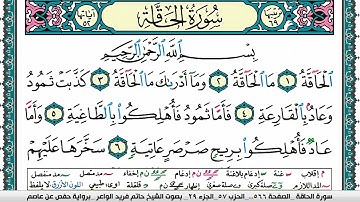 ترتيبها ٦٩
سُورَةُ الْحَاقَّةِ
آياتها ٥٢
بِسْمِ اللَّهِ الرَّحْمَٰنِ الرَّحِيمِ
الْحَاقَّةُ ١ مَا الْحَاقَّةُ ٢ وَمَا أَدْرَاكَ مَا الْحَاقَّةُ ٣ كَذَّبَتْ ثَمُودُ
وَعَادٌ بِالْقَارِعَةِ ٤ فَأَمَّا ثَمُودُ فَأُهْلِكُوا بِالطَّاغِيَةِ ٥ وَأَمَّا
عَادٌ فَأُهْلِكُوا بِرِيحٍ صَرْصَرٍ عَاتِيَةٍ ٦ سَخَّرَهَا عَلَيْهِمْ
سورة الحاقة _ الصفحة ٥٦٦ _ الحزب ٥٧ _ الجزء ٢٩ _ بصوت الشيخ حاتم فريد الواعر _ برواية حفص عن عاصم